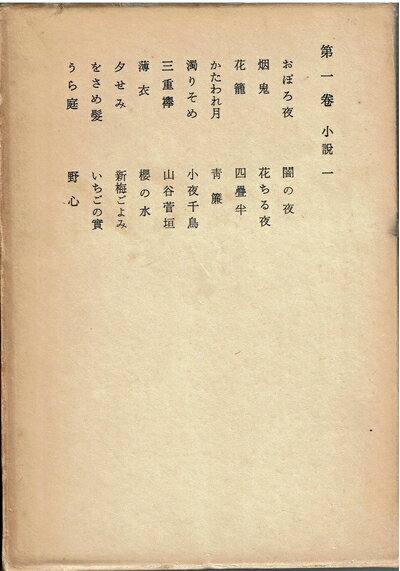 第一巻 小説一
おぼろ夜 闇の夜
烟鬼 花ちる夜
花籠 四疊半
かたわれ月 靑簾
濁りそめ 小夜千鳥
三重襷 山谷菅垣
薄衣 櫻の水
夕せみ 新梅ごよみ
をさめ髪 いちごの實
うら庭 野心